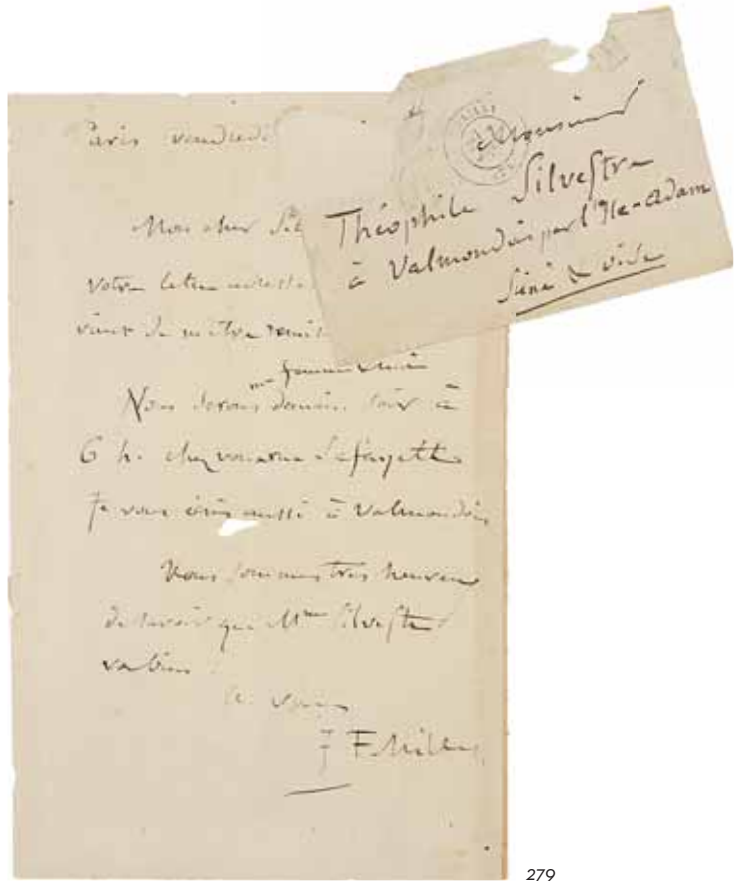 Paris vendredi
Mon cher Sil
votre lettre
vient de m'être remise
ma femme & moi
Nous serons demain soir à
6 h. chez vous rue Lafayette
Je vous écris aussi à Valmondois
Nous sommes très heureux
de savoir que Mme Silvestre
va bien.
à vous
J F Millet
Monsieur
Théophile Silvestre
à Valmondois par l'Ile-Adam
Seine & Oise
279